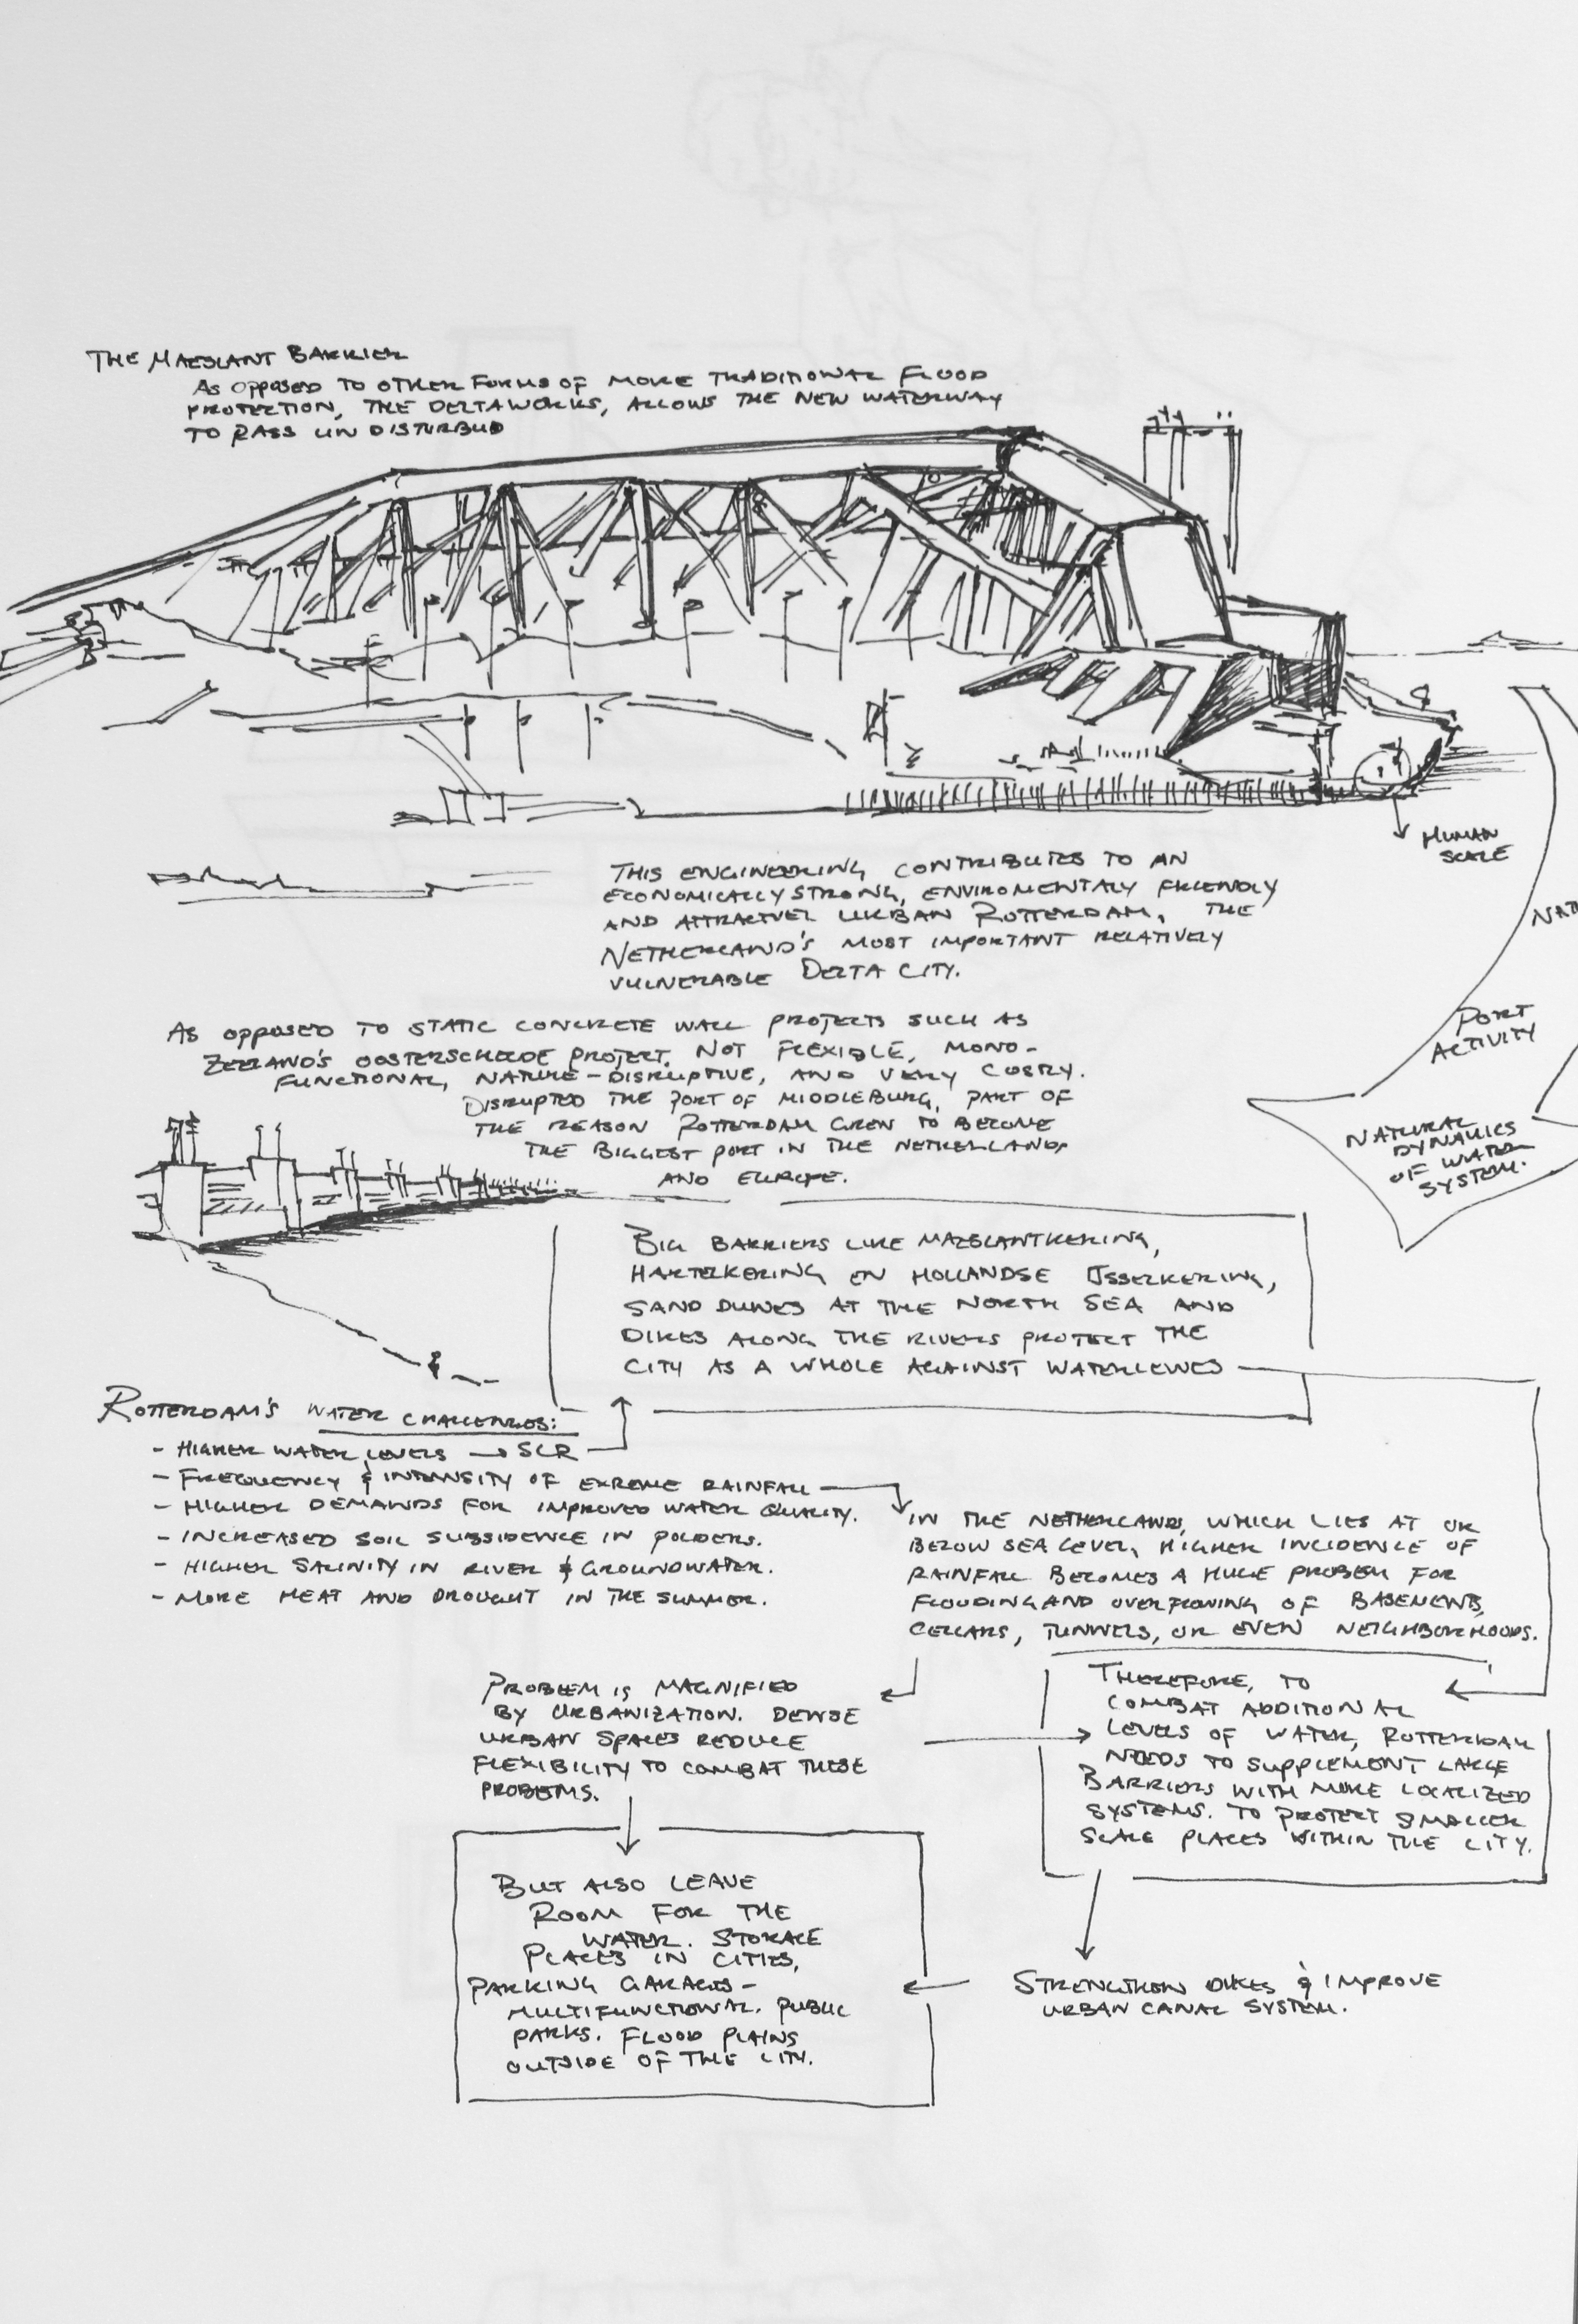 THE MAESLANT BARRIER
AS OPPOSED TO OTHER FORMS OF MORE TRADITIONAL FLOOD
PROTECTION, THE DELTAWORKS, ALLOWS THE NEW WATERWAY
TO PASS UNDISTURBUD
HUMAN
SCALE
THIS ENGINEERING CONTRIBUTES TO AN
ECONOMICALLY STRONG, ENVIROMENTALY FRIENDLY
AND ATTRACTVEL URBAN ROTTERDAM, THE
NETHERLAND'S MOST IMPORTANT RELATIVELY
VULNERABLE DELTA CITY.
NAT
PORT
ACTIVITY
NATURAL
DYNAMICS
OF WATER
SYSTEM.
AS OPPOSED TO STATIC CONCRETE WALL PROJECTS SUCH AS
ZEELAND'S OOSTERSCHELDE PROJECT. NOT FLEXIBLE, MONO-
FUNCTIONAL, NATURE-DISRUPTIVE, AND VERY COSTLY.
DISRUPTED THE PORT OF MIDDLEBURG, PART OF
THE REASON ROTTERDAM GREW TO BECOME
THE BIGGEST PORT IN THE NETHERLANDS
AND EUROPE.
BIG BARRIERS LIKE MAESLANTKERING,
HARTELKERING EN HOLLANDSE IJSSELKERING,
SAND DUNES AT THE NORTH SEA AND
DIKES ALONG THE RIVERS PROTECT THE
CITY AS A WHOLE AGAINST WATERLEVELS
ROTTERDAM'S WATER CHALLENGES:
- HIGHER WATER LEVELS → SLR
- FREQUENCY & INTENSITY OF EXREME RAINFALL
- HIGHER DEMANDS FOR IMPROVED WATER QUALITY.
- INCREASED SOIL SUBSIDENCE IN POLDERS.
- HIGHER SALINITY IN RIVER & GROUNDWATER.
- MORE HEAT AND DROUGHT IN THE SUMMER.
IN THE NETHERLANDS, WHICH LIES AT OR
BELOW SEA LEVEL, HIGHER INCIDENCE OF
RAINFALL BECOMES A HUGE PROBLEM FOR
FLOODING AND OVERFLOWING OF BASEMENTS,
CELLARS, TUNNELS, OR EVEN NEIGHBORHOODS.
PROBLEM IS MAGNIFIED
BY URBANIZATION. DENSE
URBAN SPACES REDUCE
FLEXIBILITY TO COMBAT THESE
PROBEMS.
THEREFORE, TO
COMBAT ADDITIONAL
LEVELS OF WATER, ROTTERDAM
NEEDS TO SUPPLEMENT LARGE
BARRIERS WITH MORE LOCALIZED
SYSTEMS. TO PROTECT SMALLER
SCALE PLACES WITHIN THE CITY.
STRENGTHEN DIKES & IMPROVE
URBAN CANAL SYSTEM.
BUT ALSO LEAVE
ROOM FOR THE
WATER. STORAGE
PLACES IN CITIES,
PARKING GARAGES-
MULTIFUNCTIONAL. PUBLIC
PARKS. FLOOD PLAINS
OUTSIDE OF THE CITY.